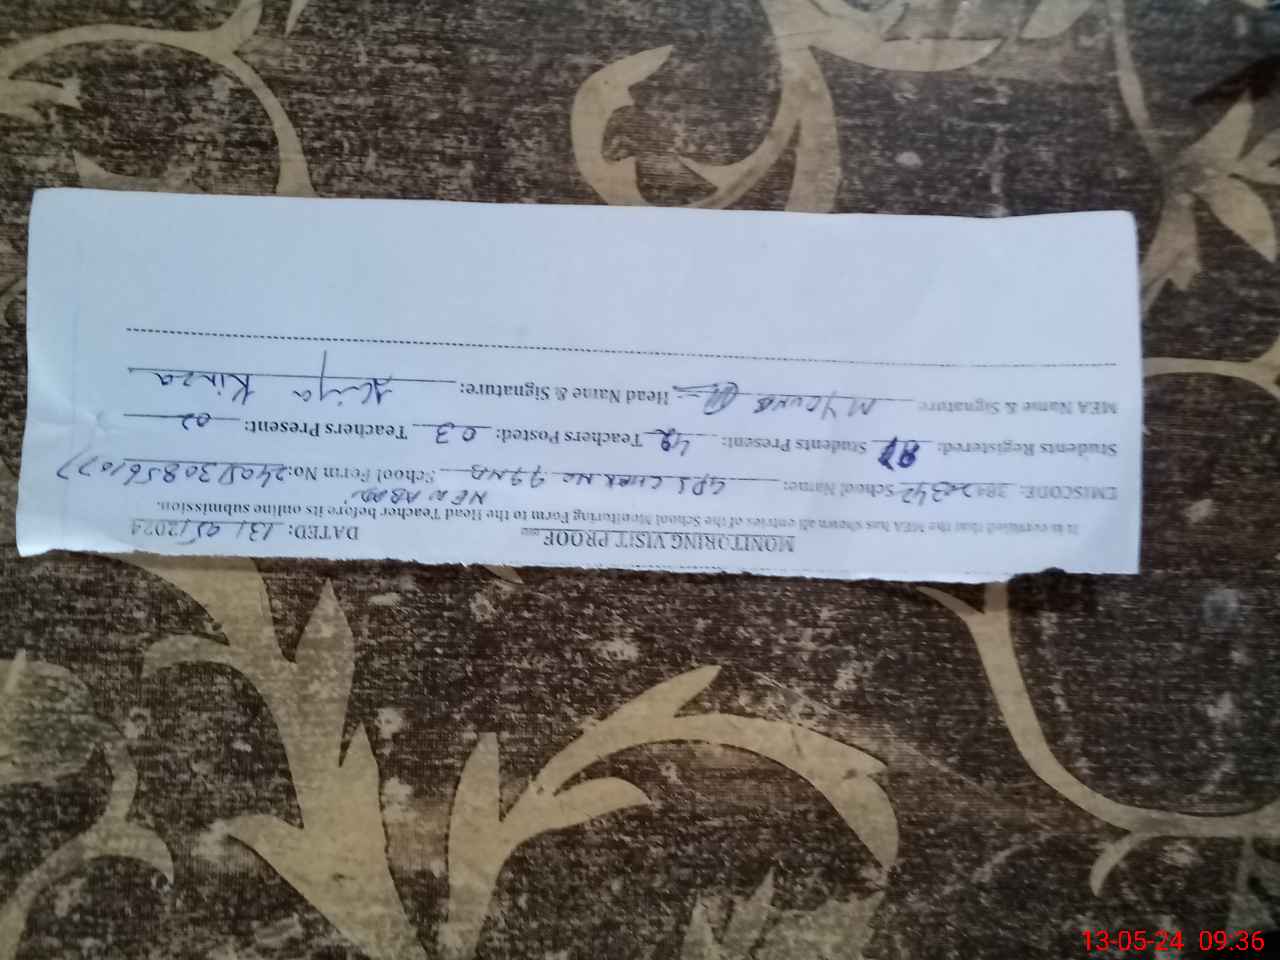 MONITORING VISIT PROOF DATED: 13/05/2024
It is certified that the MEA has shown all entries of the School Monitoring Form to the Head Teacher before its online submission.
NEW ABADI
EMISCODE: School Name: GPS CHAK NO 79 NB School Form No: 240513085561077
Students Registered: Students Present: 42 Teachers Posted: 03 Teachers Present: 02
MEA Name & Signature M YOUNAS Head Name & Signature: Kinza
13-05-24 09:36